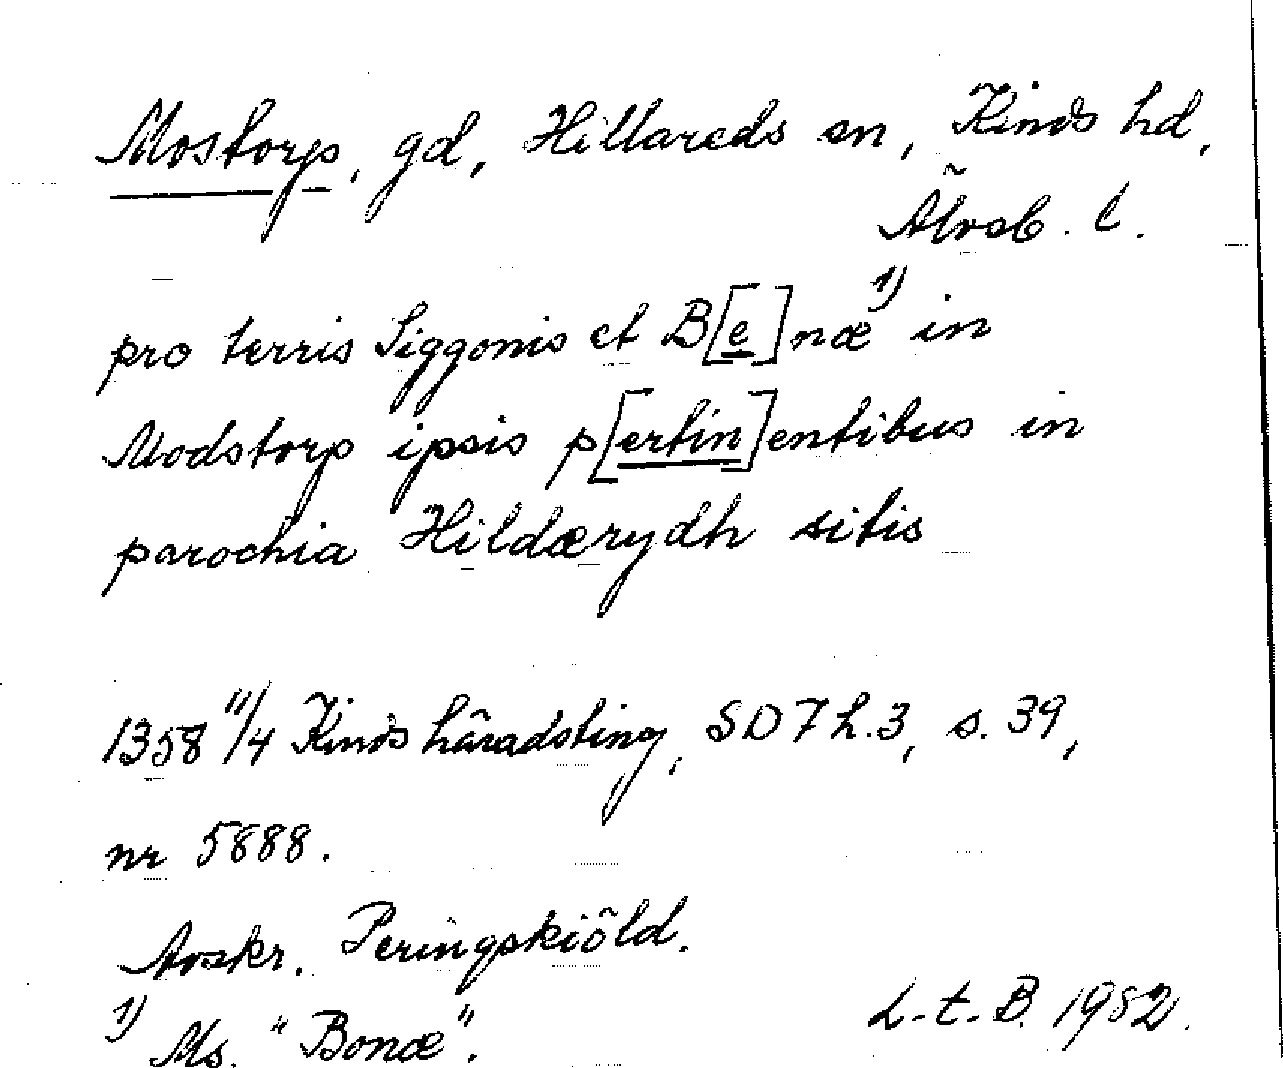 Mostorp, gd, Hillareds sn, Kinds hd,
Älvsb. l.
pro terris Siggonis et B[e]næ 1) in
Modstorp ipsis p[ertin]entibus in
parochia Hildærydh sitis
1358 11/4 Kinds häradsting, SD 7 h.3, s. 39,
nr 5888.
Avskr. Peringskiöld.
1) Ms. "Bonæ".
L-t-B. 1982.